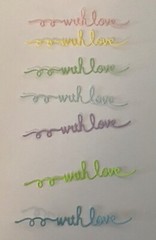 with love
with love
with love
with love
with love
with love
with love